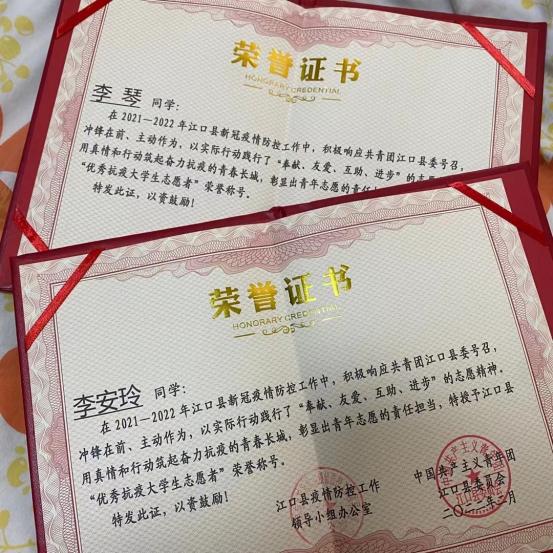 荣誉证书
HONORARY CREDENTIAL
李琴 同学：
在2021—2022年江口县新冠疫情防控工作中，积极响应共青团江口县委号召，
冲锋在前、主动作为，以实际行动践行了“奉献、友爱、互助、进步”的志愿
用真情和行动筑起奋力抗疫的青春长城，彰显出青年志愿的责任
“优秀抗疫大学生志愿者”荣誉称号。
特发此证，以资鼓励！
荣誉证书
HONORARY CREDENTIAL
李安玲 同学：
在2021—2022年江口县新冠疫情防控工作中，积极响应共青团江口县委号召，
冲锋在前、主动作为，以实际行动践行了“奉献、友爱、互助、进步”的志愿精神。
用真情和行动筑起奋力抗疫的青春长城，彰显出青年志愿的责任担当，特授予江口县
“优秀抗疫大学生志愿者”荣誉称号。
特发此证，以资鼓励！
江口县疫情防控工作 中国共产主义青年团
领导小组办公室 江口县委员会
二〇二二年二月